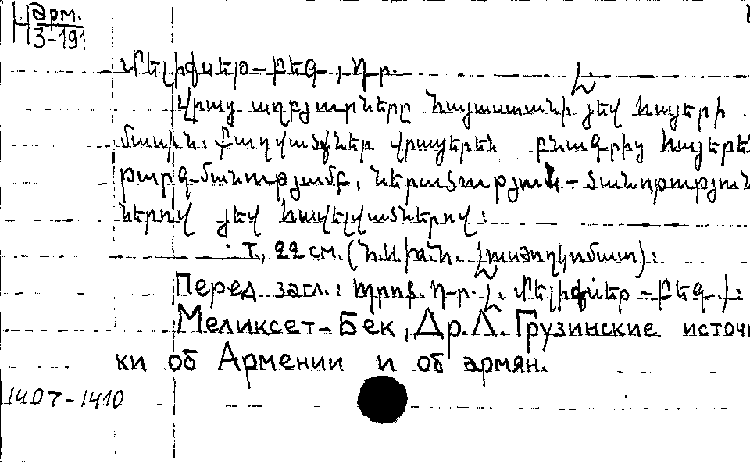 Н арм.
3-191
Մելիքսեթ-Բեգ, Դ-ր. Լ
Վրաց աղբյուրները Հայաստանի յեվ հայերի
մասին: Քաղվածքներ վրացերեն բնագրից հայերեն
թարգմանությամբ, ներածությամբ-ծանոթություն
ներով յեվ հավելվածներով:
Т., 22 см. (Հ.Ս.Խ.Հ. Լուսժողկոմատ):
Перед загл.: պրոֆ. Դ-ր. Լ. Մելիքսեթ-Բեգ.):
Меликсет-Бек, Др. Л. Грузинские источ
ки об Армении и об армян.
1407-1410